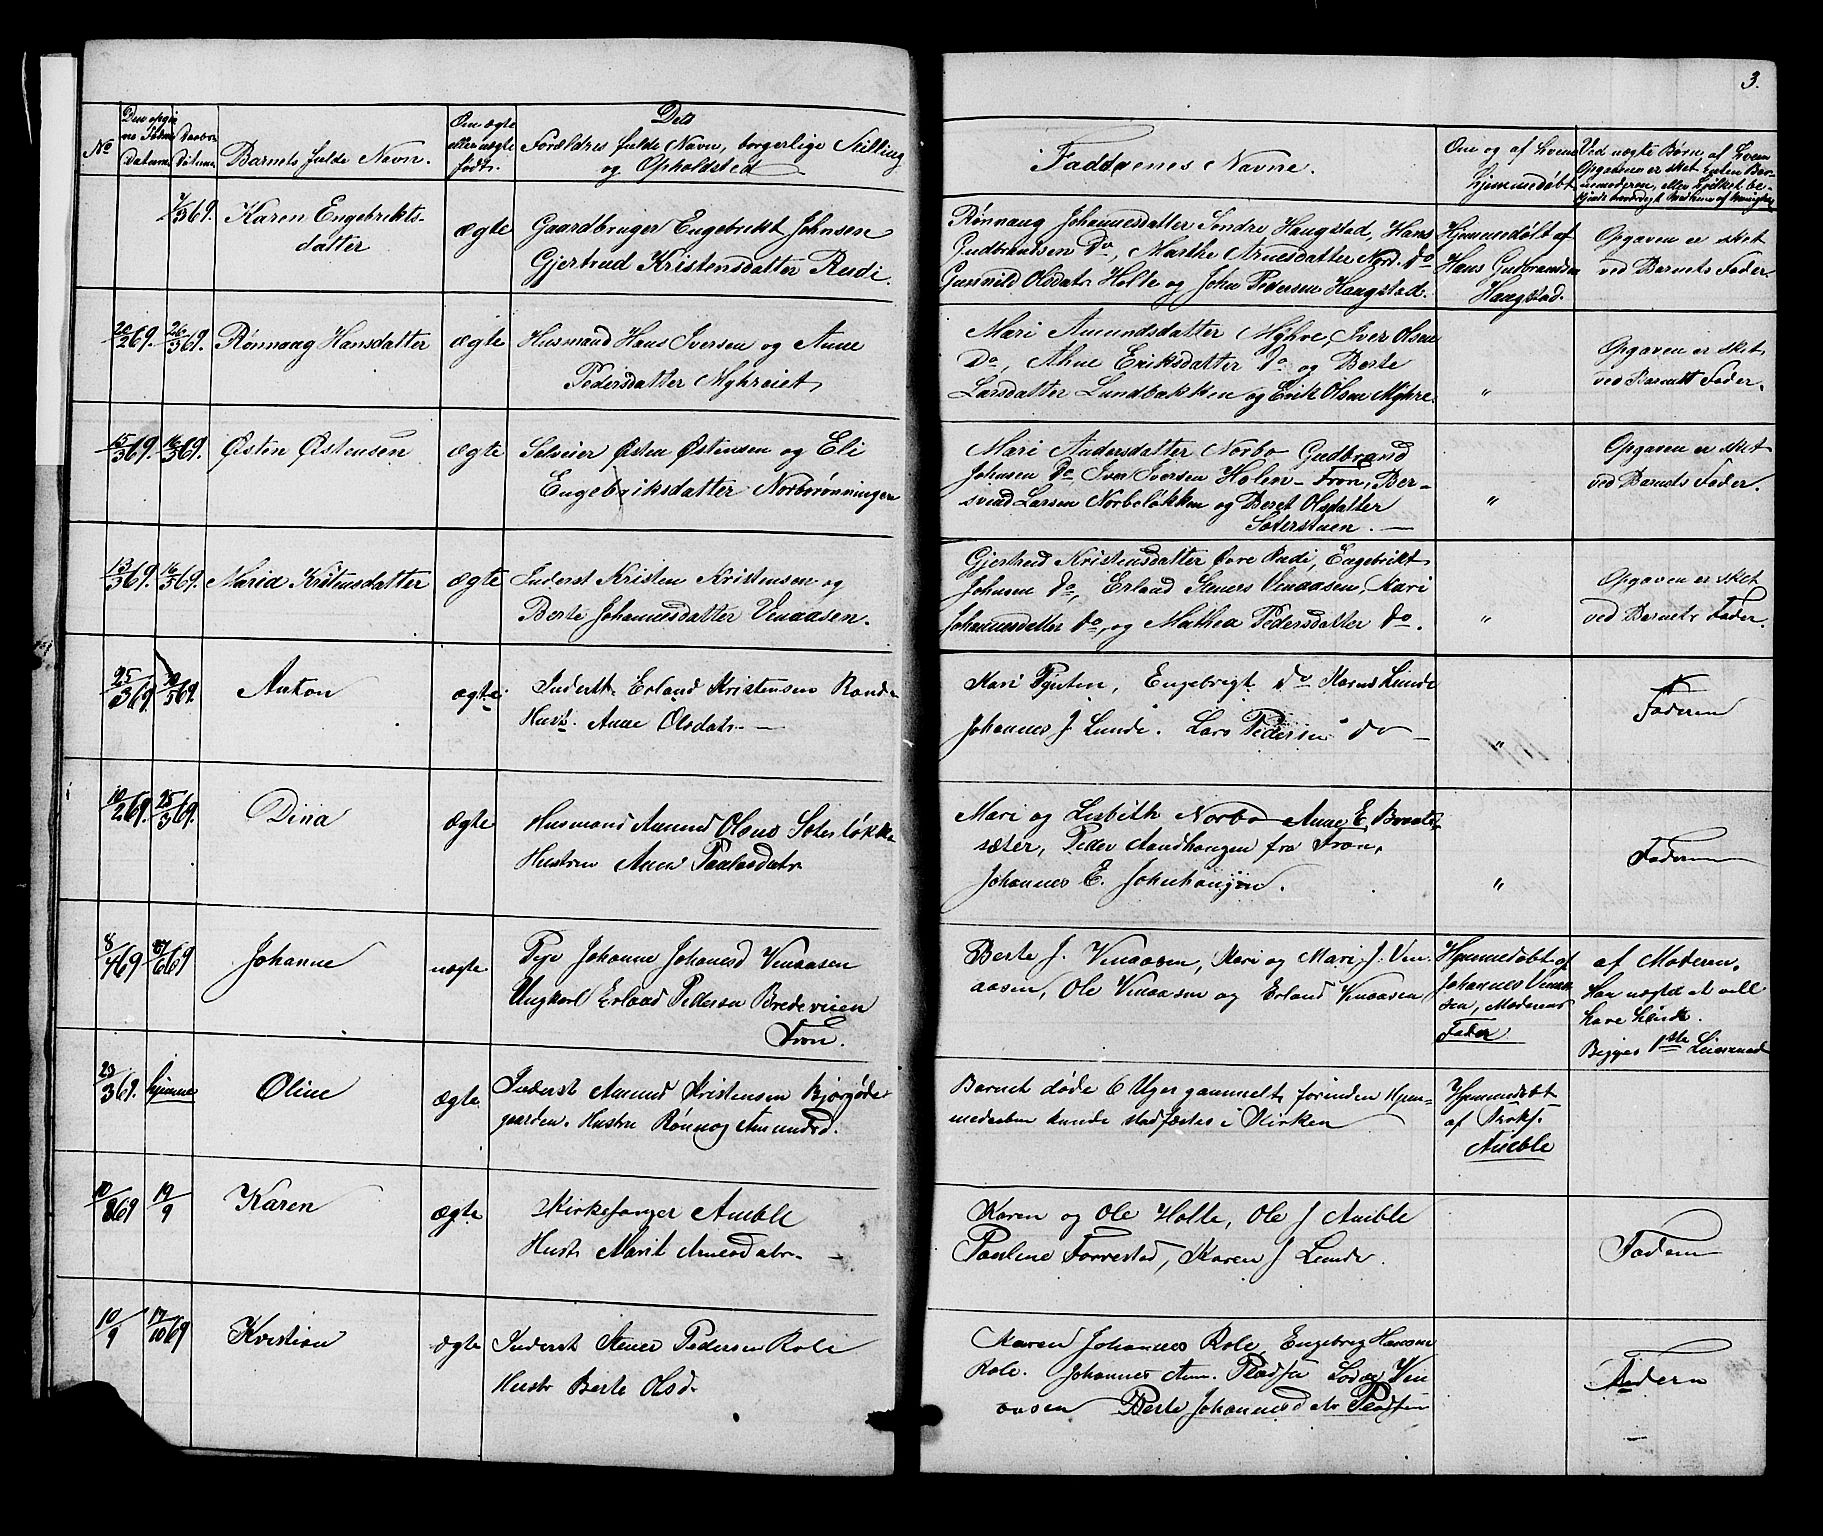 3.
No
Den opgivne Fødsels Datum
Daabens Datum
Barnets fulde Navn.
Om ægte eller uægte født.
Dets Forældres fulde Navn, borgerlige Stilling og Opholdsted
Faddernes Navne.
Om og af hvem hjemmedøbt
Ved uægte Børn, af hvem Opgaven er sket
7/3 69. Karen Engebrikts-
datter
ægte
Gaardbruger Engebrikt Johnsen
Gjertrud Kristensdatter Rudi.
Rønnaug Johannesdatter Søndre Haugstad, Hans
Gudbrandsen Do, Marthe Arnesdatter Nord. Do
Gunnild Olsdatr Holte og John Pedersen Haugstad.
Hjemmedøbt af
Hans Gudbrandsen
Haugstad.
Opgaven er sket
ved Barnets Fader.
20/2 69. 26/3 69. Rønnaug Hansdatter
ægte
Husmand Hans Iversen og Anne
Pedersdatter Myhreiet
Mari Amundsdatter Myhre, Iver Olsen
Do, Anne Eriksdatter Do og Berte
Larsdatter Lundbakken og Erik Olsen Myhre.
"
Opgaven er sket
ved Barnets Fader.
15/3 69. 16/5 69. Østen Østensen
ægte
Selveier Østen Østensen og Eli
Engebriksdatter Norborønningen
Mari Andersdatter Norbo Gudbrand
Johnsen Do, Iver Iversen Holen - Fron, Ber-
svend Larsen Norboløkken og Beret Olsdatter
Soterstuen. —
"
Opgaven er sket
ved Barnets Fader.
13/3 69. 16/5 69. Maria Kristensdatter
ægte
Inderst Kristen Kristensen og
Berte Johannesdatter Venaasen.
Gjertrud Kristensdatter øvre Rudi, Engebrikt
Johnsen Do, Erland Steners Venaasen, Kari
Johannesdatter Do, og Mathea Pedersdatter Do.
"
Opgaven er sket
ved Barnets Fader.
25/3 69. Anton
ægte
Inderst. Erland Kristensen Rand
Hust. Anne Olsdatr. —
Kari Pynten, Engebrigt Do Karen Lunde
Johannes J Lunde. Lars Pedersen Do —
"
Faderen
10/2 69. 25/3 69. Dina
ægte
Husmand Amund Olsen Soterløkk.
Hustru Anne Paulsdatr
Mari og Lisbeth Norbo Anne E.
sæter, Peder Aandhaugen fra Fron,
Johannes E. Johnhaugen.
"
Faderen
8/4 69 27/6 69 Johanne
uægte
Pige Johanne Johanesd Venaasen
Ungkarl Erland Pedersen Bredeveien
Fron.
Berte J. Venaasen, Kari og Mari J. Ven-
aasen, Ole Venaasen og Erland Venaasen
Hjemmedøbt af
Johannes Venaa-
sen, Moderens
Fader
af Moderen.
Han nægtet at ville
have hende.
Begges 1ste Leiermaal
23/3 69. hjemme Oline
ægte
Inderst Amund Kristensen Bjørgøde-
gaarden. Hustru Rønnog Amundsd.
Barnet døde 6 Uger gammelt, forinden Hjem-
medaaben kunde stadfæstes i Kirken
Hjemmedøbt
af Kirkes.
Aueble
10/8 69 19/9 Karen
ægte
Kirkesanger Aueble
Hustr Marit Arnesdatr. —
Karen og Ole Holte, Ole J Aueble
Pauline Forrestad, Karen J Lunde.
Faderen
10/9 17/10 69 Kristian
ægte
Inderst Stener Pedersen Role
Hustr Berte Olsd.
Karen Johannes Role, Engebreg Hansen
Role. Johannes Am. Pladsen Ven
aasen Berte Johannesdatr Pladsen
Faderen